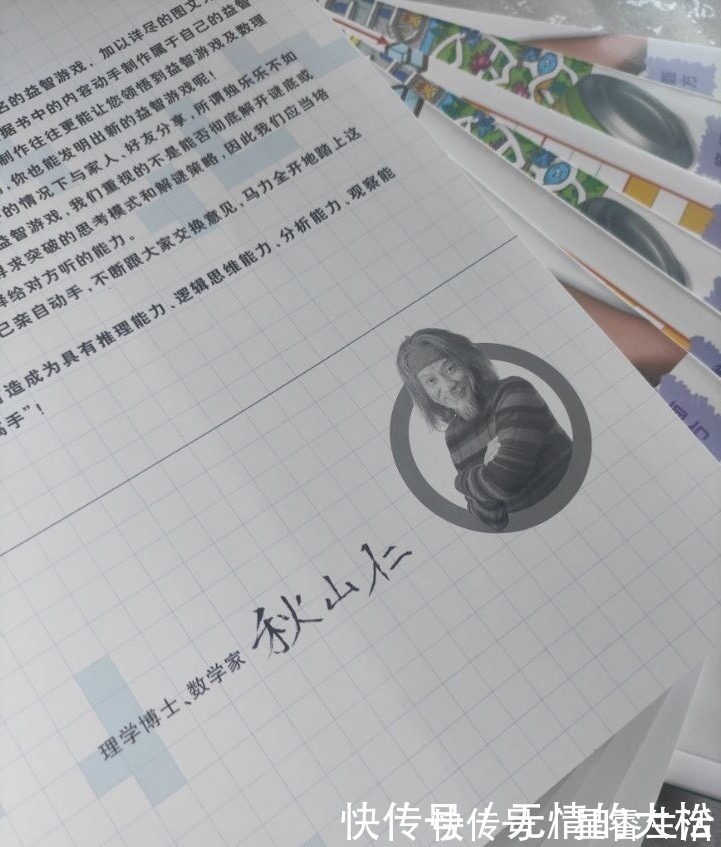 名的益智游戏，加以详尽的图文
据书中的内容动手制作属于自己的益智
制作往往更能让您领悟到益智游戏及数理
，你也能发明出新的益智游戏呢！
的情况下与家人、好友分享，所谓独乐乐不如
益智游戏，我们重视的不是能否彻底解开谜底或
寻求突破的思考模式和解谜策略，因此我们应当培
释给对方听的能力。
己亲自动手，不断跟大家交换意见，马力全开地踏上这
造成为具有推理能力、逻辑思维能力、分析能力、观察能
高手”！
理学博士、数学家 秋山仁
快传号/无情的大松